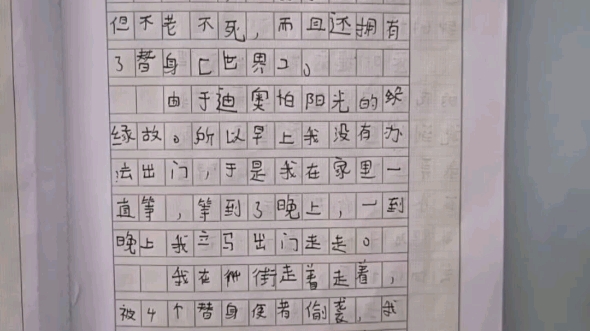 但不老不死，而且还拥有
了替身［世界］。
由于迪奥怕阳光的缘
缘故。所以早上我没有办
法出门，于是我在家里一
直等，等到了晚上，一到
晚上我立马出门走走。
我在街走着走着，
被4个替身使者偷袭，我